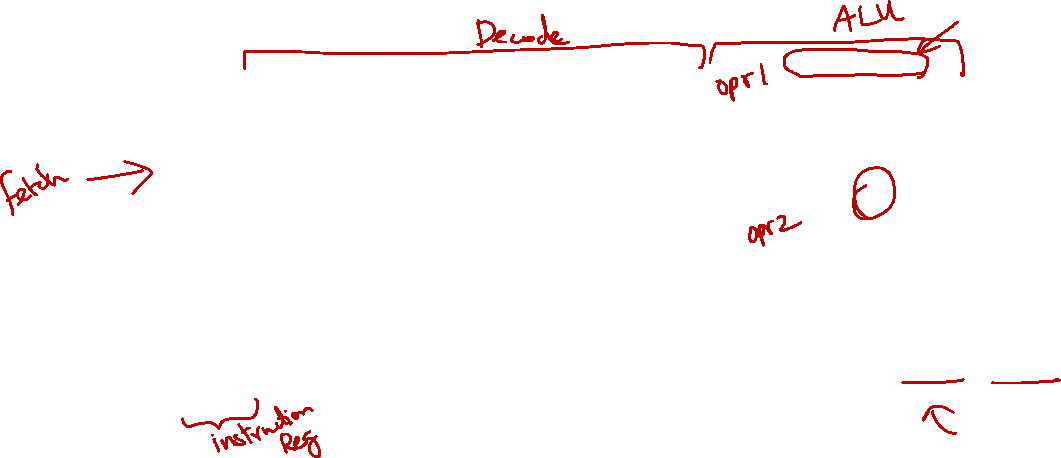 ALU
Decode
opr1
fetch
opr2
instruction
Reg